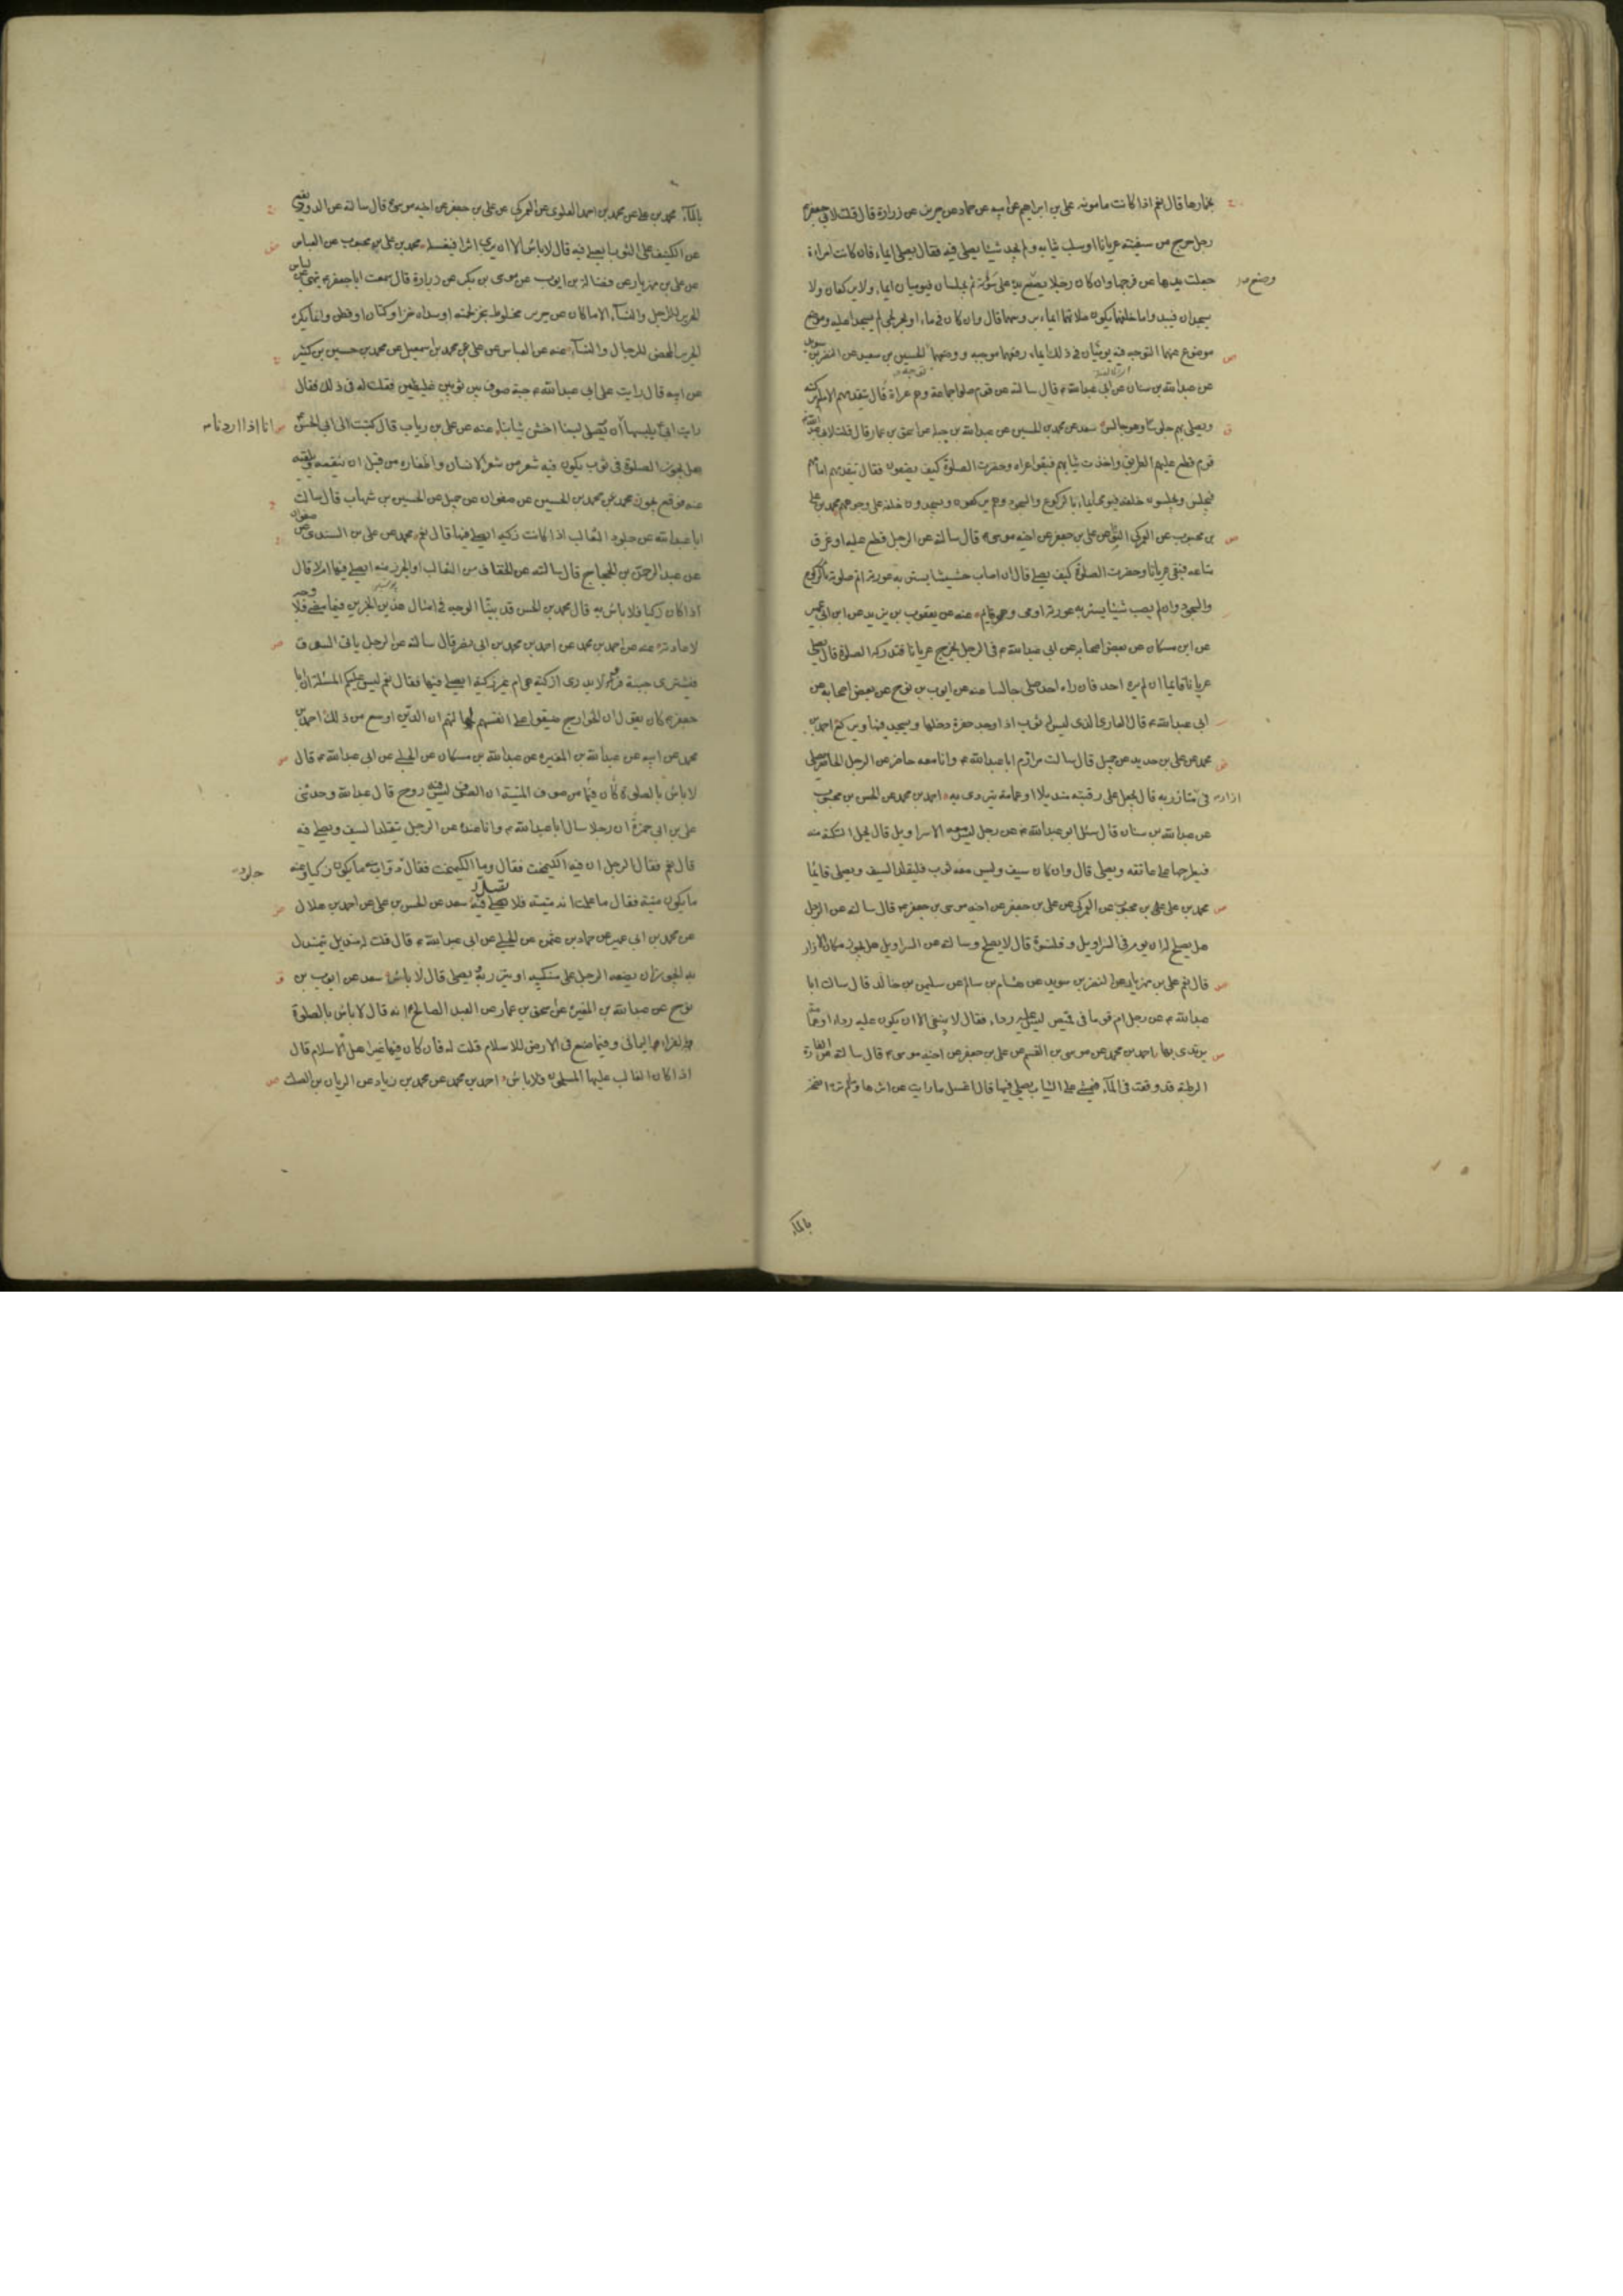 بخمارها قال نعم اذا كانت مامونه على بن ابراهيم عن ابيه عن حماد عن حريز عن زرارة قال قلت لابى جعفر ع
رجل خرج من سفينته عريانا او سلب ثيابه ولم يجد شيئا يصلى فيه فقال يصلى ايماء فان كانت امراة
جعلت يديها على فرجها وان كان رجلا يضع يده على سؤته ثم يجلسان فيوميان ايماء ولا يركعان ولا
وضع
يسجدان فيبدو ما خلفهما يكون صلاتهما ايماء بروسهما قال وان كان فى ماء او بحر لجى لم يسجدا عليه وموضوع
موضوع عنهما التوجه فيه يوميان فى ذلك ايماء رفعهما موجبه ووضعهما الحسين بن سعيد عن النضر بن سويد
عن عبدالله بن سنان عن ابى عبدالله ع قال سالته عن قوم صلوا جماعة وهم عراة قال يتقدمهم الامام بركبتيه
ويصلى بهم جلوسا وهو جالس سعد عن محمد بن الحسين عن عبدالله بن جبلة عن اسحق بن عمار قال قلت لابى عبدالله
قوم قطع عليهم الطريق واخذت ثيابهم فبقوا عراة وحضرت الصلوة كيف يصنعون فقال يتقدمهم امامهم
فيجلس ويجلسون خلفه فيومى ايماء بالركوع والسجود وهم يركعون ويسجدون خلفه على وجوههم محمد بن على
بن محبوب عن العمركى البوفكى عن على بن جعفر عن اخيه موسى ع قال سالته عن الرجل قطع عليه او غرق
متاعه فبقى عريانا وحضرت الصلوة كيف يصلى قال ان اصاب حشيشا يستر به عورته اتم صلوته بالركوع
والسجود وان لم يصب شيئا يستر به عورته اومى وهو قايم عنه عن يعقوب بن يزيد عن ابن ابى عمير
عن ابن مسكان عن بعض اصحابه عن ابى عبدالله ع فى الرجل يخرج عريانا فتدركه الصلوة قال يصلى
عريانا قايما ان لم يره احد فان راه احد صلى جالسا عنه عن ايوب بن نوح عن بعض اصحابه عن
ابى عبدالله ع قال العارى الذى ليس له ثوب اذا وجد حفرة دخلها ويسجد فيها ويركع احمد بن
محمد عن على بن حديد عن جميل قال سالت مرازم ابا عبدالله ع وانا معه حاضر عن الرجل الحاضر يصلى
ازار
فى متازر به قال يجعل على رقبته منديلا او عمامة يتردى به احمد بن محمد عن الحسن بن محبوب
عن عبدالله بن سنان قال سئل ابو عبدالله ع عن رجل ليس معه الا سراويل قال يحل التكة منه
فيطرحها على عاتقه ويصلى قال وان كان سيف وليس معه ثوب فليقلد السيف ويصلى قايما
محمد بن على بن محبوب عن العمركى عن على بن جعفر عن اخيه موسى بن جعفر ع قال سالته عن الرجل
هل يصلح له ان يؤم فى السراويل وقلنسوة قال لا يصلح وسالته عن السراويل هل يجوز مكان الازار
قال نعم على بن مهزيار عن النضر بن سويد عن هشام بن سالم عن سليمن بن خالد قال سالت ابا
عبدالله ع عن رجل ام قوما فى قميص ليس عليه رداء فقال لا ينبغى الا ان يكون عليه رداء او عمامة
يرتدى بها احمد بن محمد عن موسى بن القسم عن على بن جعفر عن اخيه موسى ع قال سالته عن الفارة
الرطبة قد وقعت فى الماء فتمشى على الثياب يصلى فيها قال اغسل ما رايت من اثرها وما لم تره انضحه
بالماء
بالماء محمد بن على عن محمد بن احمد العلوى عن العمركى عن على بن جعفر عن اخيه موسى ع قال سالته عن الدود يقع
عن الكنيف على الثوب ايصلى فيه قال لا باس الا ان يرى اثرا فيغسله محمد بن على بن محبوب عن العباس
عن على بن مهزيار عن فضالة بن ايوب عن موسى بن بكر عن زرارة قال سمعت ابا جعفر ع ينهى عن لباس
الحرير للرجل والنساء الا ما كان من حرير مخلوط بخز لحمته او سداه خز او كتان او قطن وانما يكره
الحرير المحض للرجال والنساء عنه عن العباس عن على عن محمد بن اسمعيل عن محمد بن حسين بن كثير
عن ابيه قال رايت على ابى عبدالله ع جبة صوف بين ثوبين غليظين فقلت له فى ذلك فقال
رايت ابى يلبسها انا اذا اردنا ان نصلى لبسنا اخشن ثيابنا عنه عن على بن رياب قال كتبت الى ابى الحسن ع
هل يجوز الصلوة فى ثوب يكون فيه شعر من شعر الانسان واظفاره من قبل ان ينفضه ويلقيه
عنه فوقع يجوز محمد عن محمد بن الحسين عن صفوان عن جميل عن الحسين بن شهاب قال سالت
ابا عبدالله عن جلود الثعالب اذا كانت ذكيه ايصلى فيها قال نعم محمد عن على بن السندى عن صفوان
عن عبدالرحمن بن الحجاج قال سالته عن الخفاف من الثعالب او الجرز منه ايصلى فيها ام لا قال
اذا كان ذكيا فلا باس به قال محمد بن الحسن قد بينا الوجه فى امثال هذين الخبرين فيما مضى فلا وجه
لاعادته عنه عن احمد بن محمد عن احمد بن محمد بن ابى نصر قال سالته عن الرجل ياتى السوق
فيشترى جبة فرو لا يدرى اذكية هى ام غير ذكية ايصلى فيها فقال نعم ليس عليكم المسئلة ان ابا
جعفر ع كان يقول ان الخوارج ضيقوا على انفسهم لجهالتهم ان الدين اوسع من ذلك احمد بن
محمد عن ابيه عن عبدالله بن المغيره عن عبدالله بن مسكان عن الحلبى عن ابى عبدالله ع قال
لا باس بالصلوة فيما كان من صوف الميتة ان الصوف ليس فيه روح قال عبدالله وحدثنى
على بن ابى حمزة ان رجلا سال ابا عبدالله ع وانا عنده عن الرجل يتقلد السيف ويصلى فيه
قال نعم فقال الرجل ان فيه الكيمخت فقال وما الكيمخت فقال جلود دواب منه ما يكون ذكيا ومنه
ما يكون ميتة فقال ما علمت انه ميتة فلا تصل فيه سعد عن الحسن بن على عن احمد بن هلال
عن محمد بن ابى عمير عن حماد بن عثمن عن الحلبى عن ابى عبدالله ع قال قلت له منديل يتمندل
به ايجوز ان يضعه الرجل على منكبيه او يتزر به ويصلى قال لا باس سعد عن ايوب بن
نوح عن عبدالله بن المغيرة عن اسحق بن عمار عن العبد الصالح ع انه قال لا باس بالصلوة
فى الفراء اليمانى وفيما صنع فى الارض الاسلام قلت له فان كان فيها غير اهل الاسلام قال
اذا كان الغالب عليها المسلمون فلا باس احمد بن محمد عن محمد بن زياد عن الريان بن الصلت